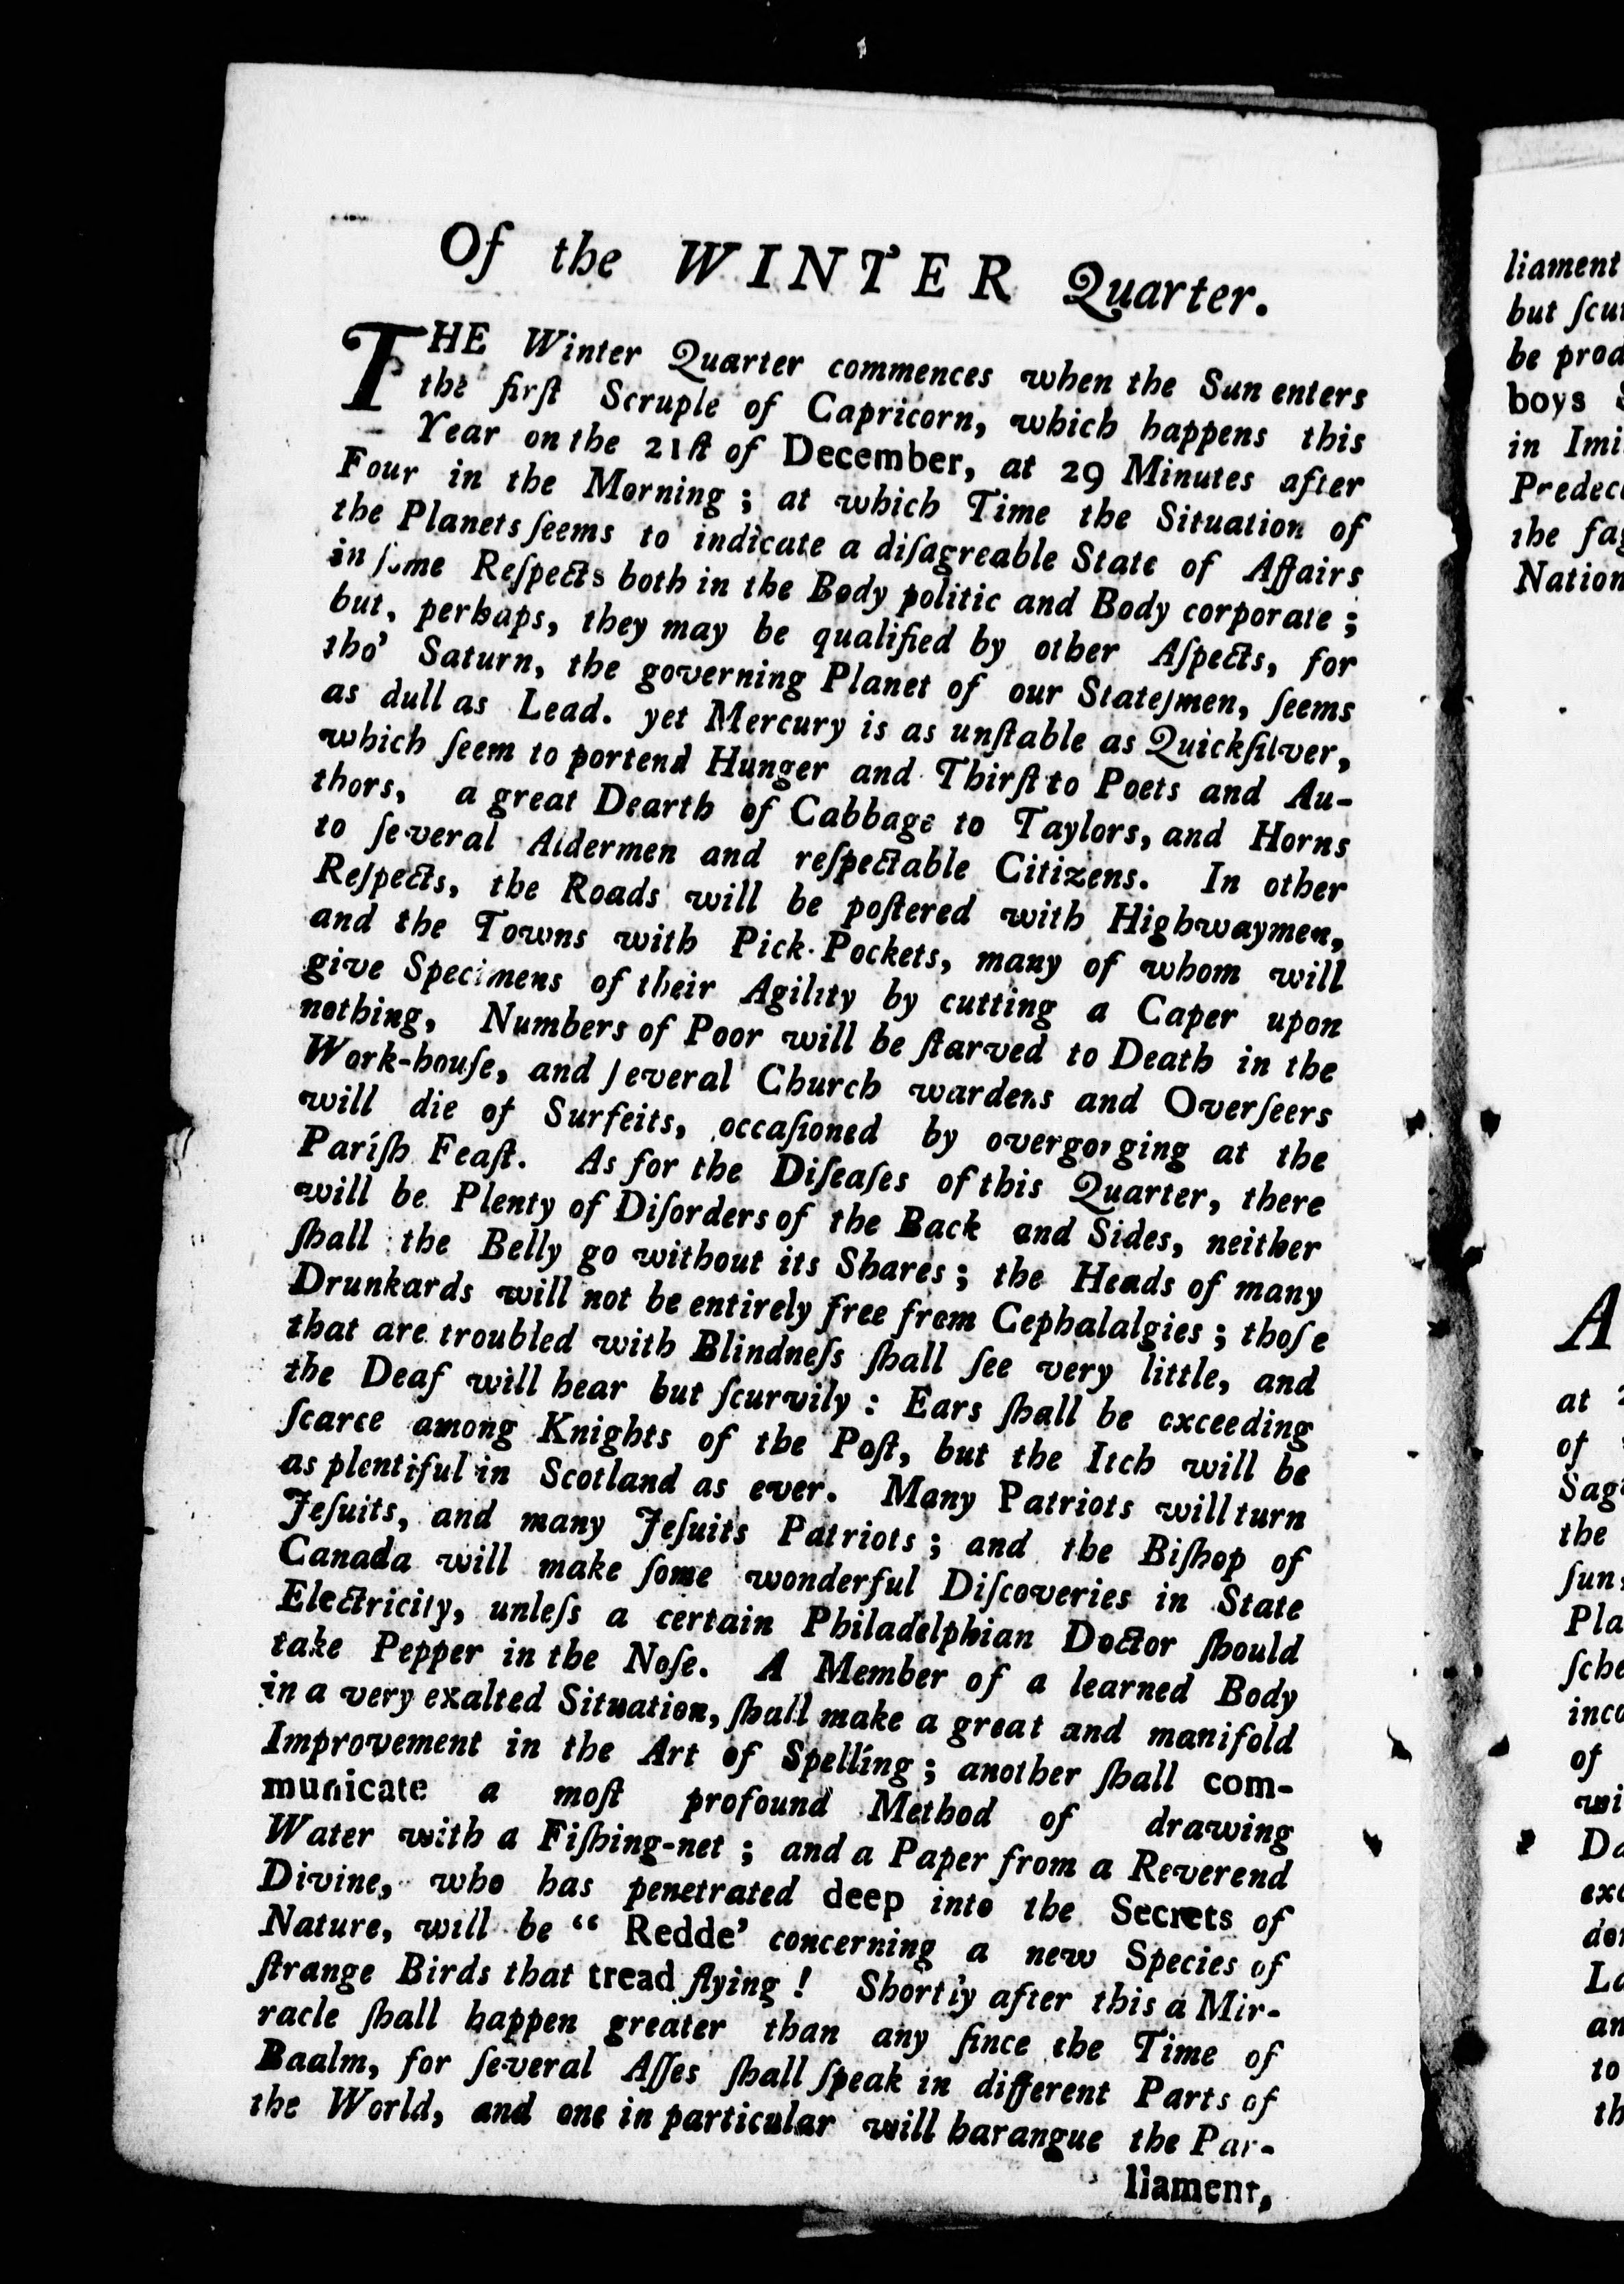 Of the WINTER Quarter.
THE Winter Quarter commences when the Sun enters
the firſt Scruple of Capricorn, which happens this
Year on the 21ſt of December, at 29 Minutes after
Four in the Morning; at which Time the Situation of
the Planets ſeems to indicate a diſagreable State of Affairs
in ſome Reſpects both in the Body politic and Body corporate;
but, perhaps, they may be qualified by other Aſpects, for
tho' Saturn, the governing Planet of our Stateſmen, ſeems
as dull as Lead. yet Mercury is as unſtable as Quickſilver,
which ſeem to portend Hunger and Thirſt to Poets and Au-
thors, a great Dearth of Cabbage to Taylors, and Horns
to ſeveral Aldermen and reſpectable Citizens. In other
Reſpects, the Roads will be poſtered with Highwaymen,
and the Towns with Pick-Pockets, many of whom will
give Specimens of their Agility by cutting a Caper upon
nothing, Numbers of Poor will be ſtarved to Death in the
Work-houſe, and ſeveral Church wardens and Overſeers
will die of Surfeits, occaſioned by overgorging at the
Pariſh Feaſt. As for the Diſeaſes of this Quarter, there
will be Plenty of Diſorders of the Back and Sides, neither
ſhall the Belly go without its Shares; the Heads of many
Drunkards will not be entirely free from Cephalalgies; thoſe
that are troubled with Blindneſs ſhall ſee very little, and
the Deaf will hear but ſcurvily: Ears ſhall be exceeding
ſcarce among Knights of the Poſt, but the Itch will be
as plentiful in Scotland as ever. Many Patriots will turn
Jeſuits, and many Jeſuits Patriots; and the Biſhop of
Canada will make ſome wonderful Diſcoveries in State
Electricity, unleſs a certain Philadelphian Doctor ſhould
take Pepper in the Noſe. A Member of a learned Body
in a very exalted Situation, ſhall make a great and manifold
Improvement in the Art of Spelling; another ſhall com-
municate a moſt profound Method of drawing
Water with a Fiſhing-net; and a Paper from a Reverend
Divine, who has penetrated deep into the Secrets of
Nature, will be "Redde' concerning a new Species of
ſtrange Birds that tread flying! Shortly after this a Mir-
racle ſhall happen greater than any ſince the Time of
Baalm, for ſeveral Aſſes ſhall ſpeak in different Parts of
the World, and one in particular will harangue the Par-
liament,
liament
but ſcu
be prod
boys
in Imi
Predec
the ſag
Nation
A
at
of
Sag
the
ſun
Pla
ſche
inco
of
wi
Da
exc
der
La
an
to
th